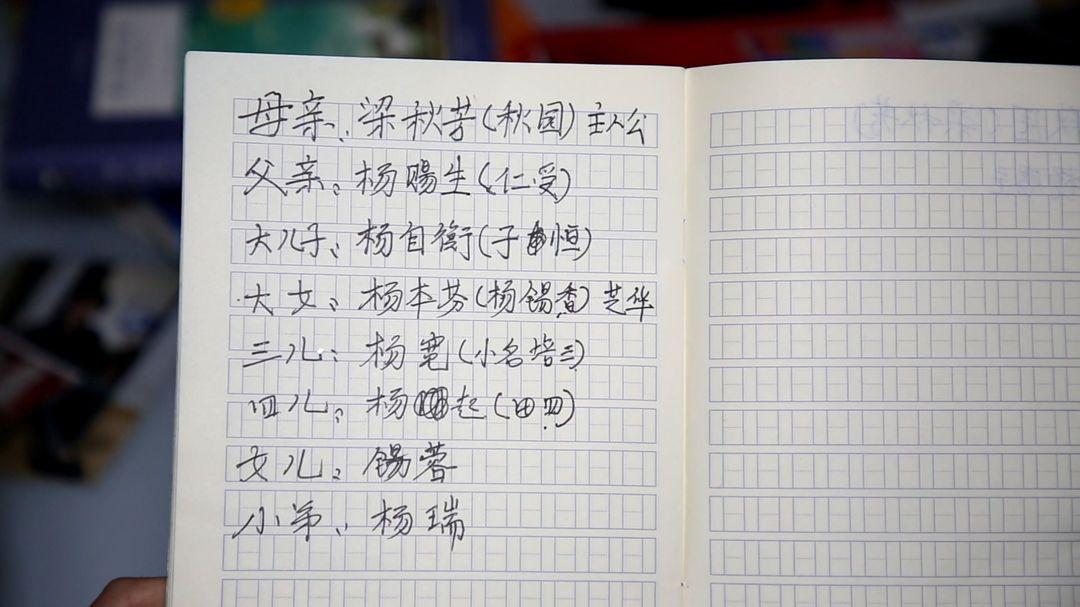 母亲：梁秋芳(秋园)主人公
父亲：杨赐生(仁受)
大儿子：杨自衡(子恒)
大女：杨本芬(杨锡香)芝华
三儿：杨宽(小名培三)
四儿：杨起(田四)
女儿：锡蓉
小弟：杨瑞